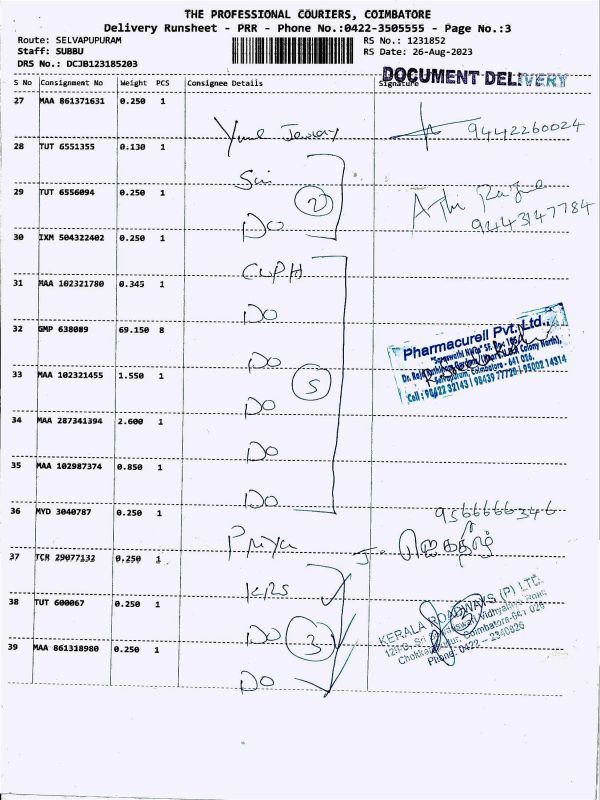 THE PROFESSIONAL COURIERS, COIMBATORE
Delivery Runsheet - PRR - Phone No.:0422-3505555 - Page No.:3
Route: SELVAPUPURAM
Staff: SUBBU
DRS No.: DCJB123185203
RS No.: 1231852
RS Date: 26-Aug-2023
DOCUMENT DELIVERY
S No Consignment No Weight PCS Consignee Details Signature
27 MAA 861371631 0.250 1
9442260024
28 TUT 6551355 0.130 1
Sri
29 TUT 6556094 0.250 1
2
DO
9443147784
30 IXM 504322402 0.250 1
31 MAA 102321780 0.345 1
DO
32 GMP 638089 69.150 8
DO
Pharmacurell Pvt. Ltd.,
Coimbatore - 641 026.
Cell : 98422 32143 | 98439 77726 | 95002 14314
33 MAA 102321455 1.550 1
5
DO
34 MAA 287341394 2.600 1
DO
35 MAA 102987374 0.850 1
DO
36 MYD 3040787 0.250 1
9566666346
Priya
37 TCR 29077132 0.250 1
KRS
38 TUT 600067 0.250 1
DO 3
KERALA ROADWAYS (P) LTD.
Coimbatore-641 026
Phone: 0422 - 2340826
39 MAA 861318980 0.250 1
DO